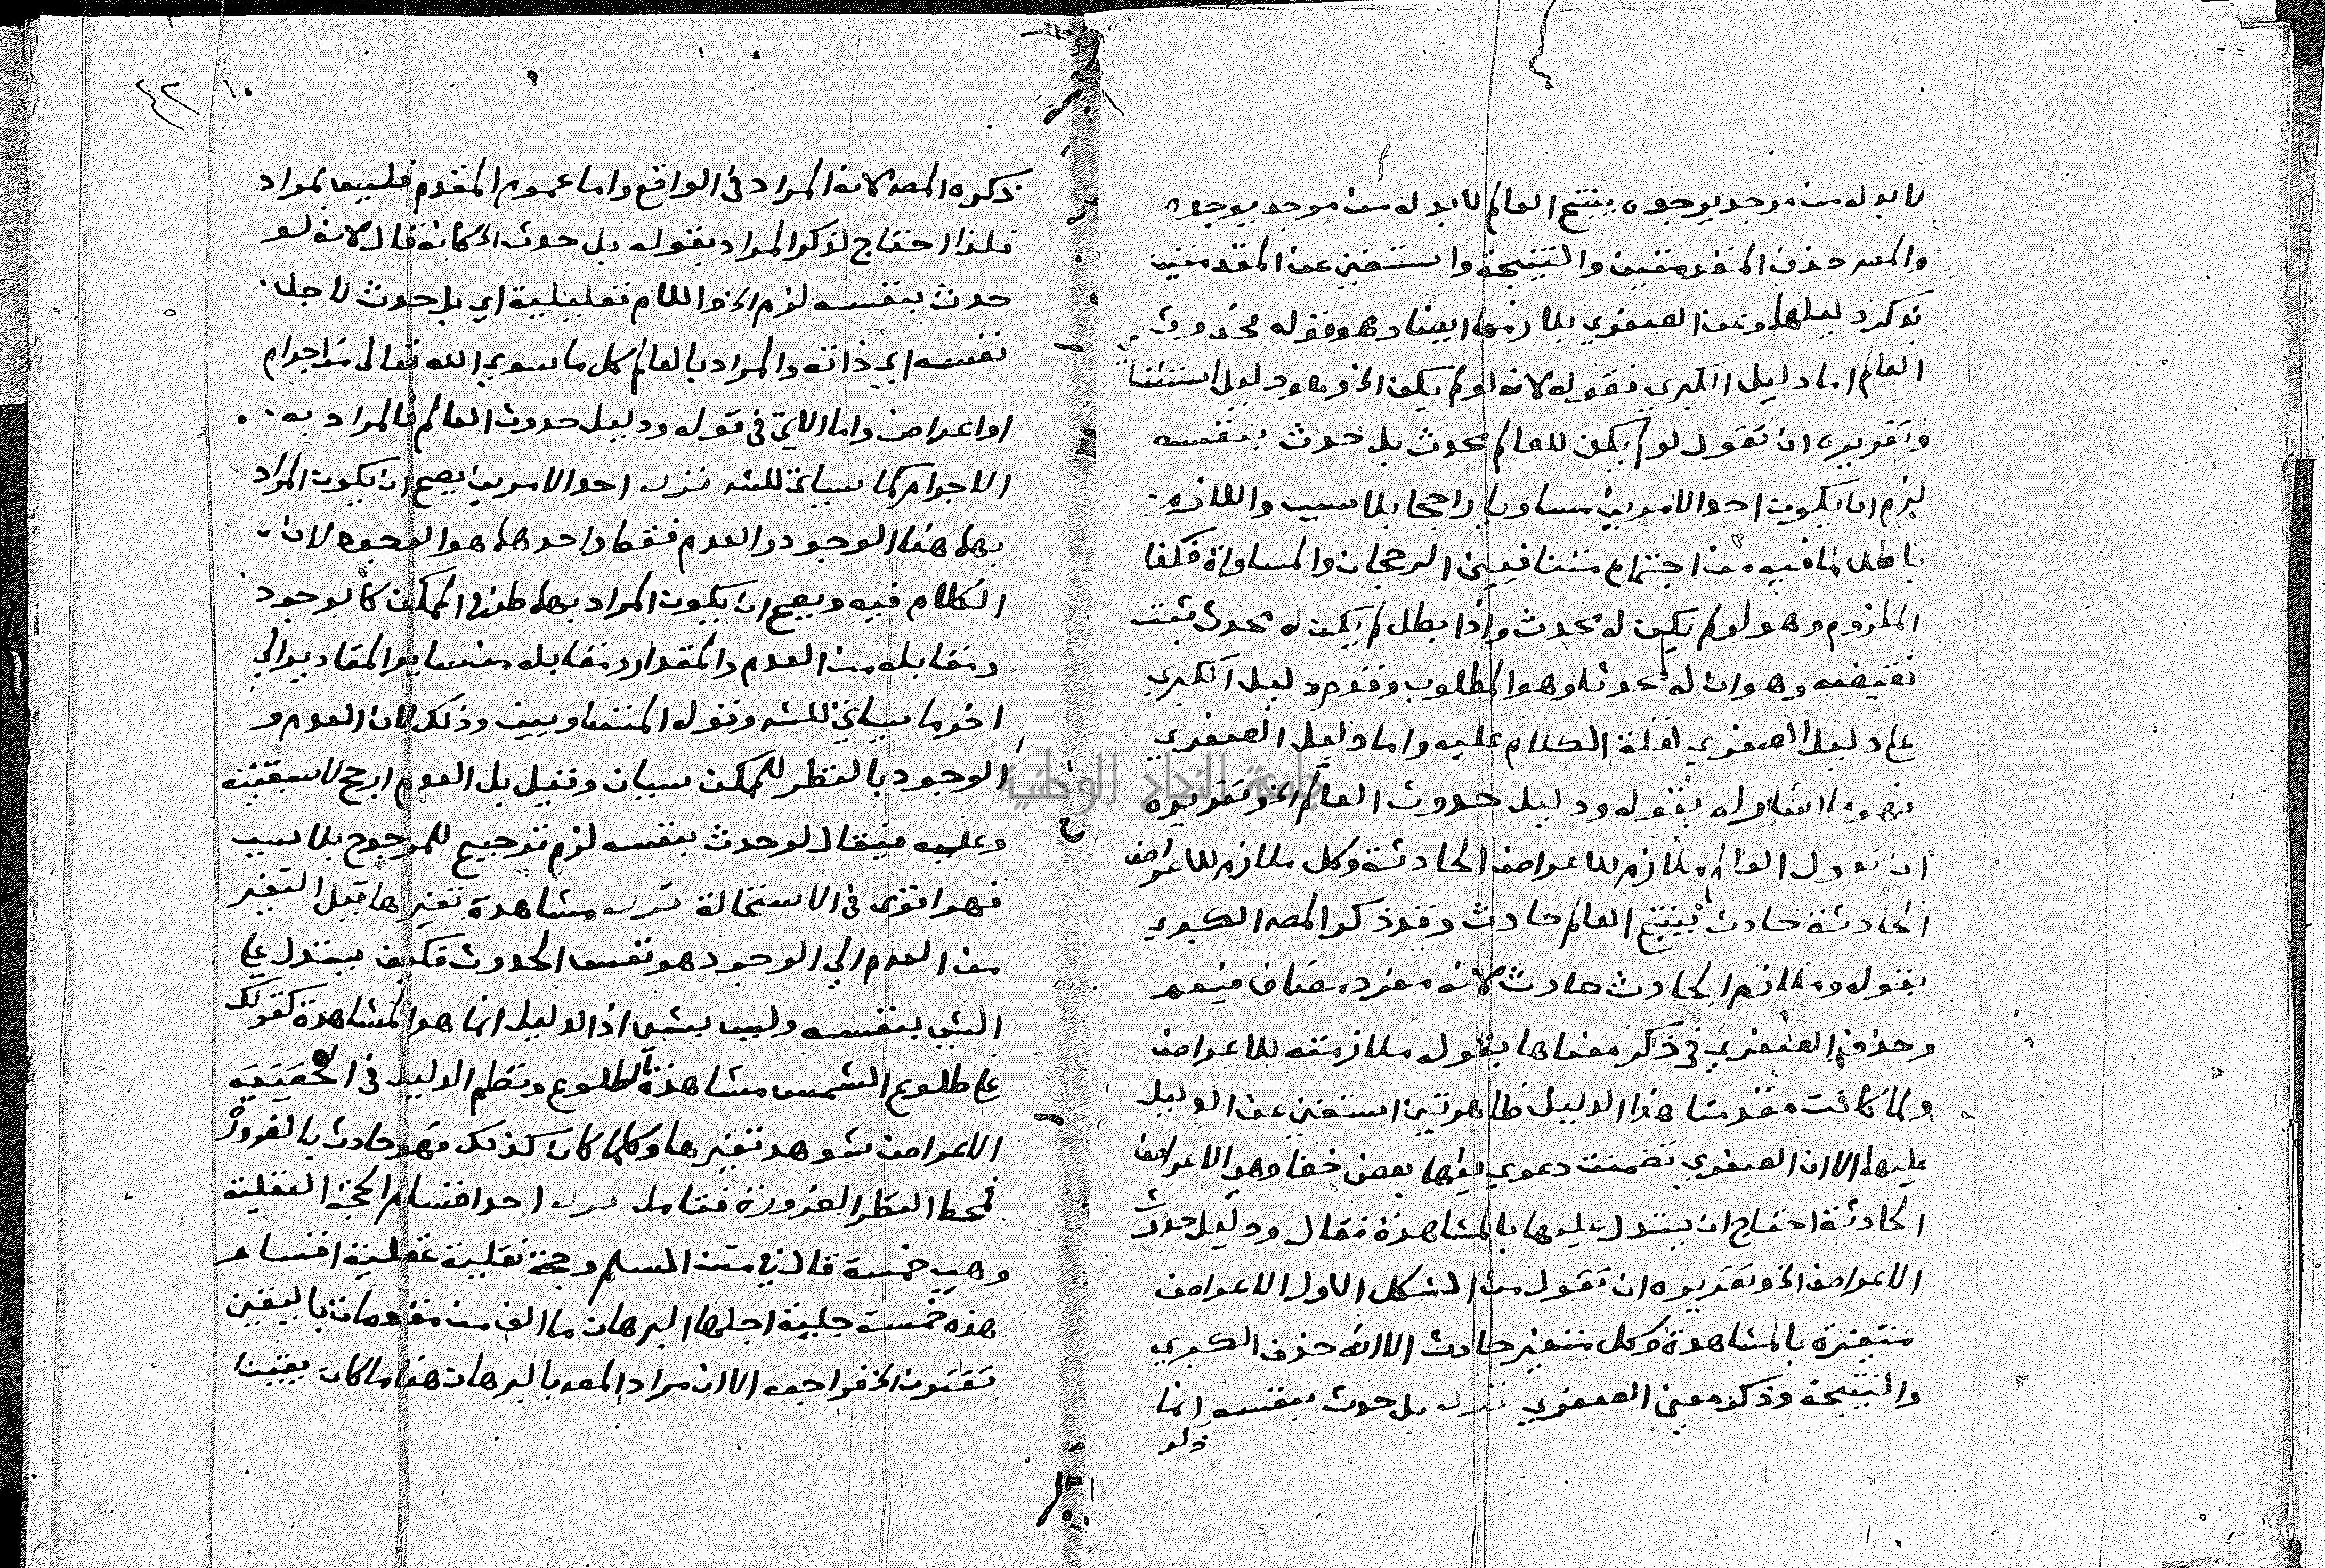 لا بد له من موجد يوجده ينتج العالم لا بد له من موجد يوجده
والمص حذف المقدمتين والنتيجة واستغني عن المقدمتين
بذكر دليلهما وعن الصغري بلازمها ايضا وهو قوله حدوث
العالم اما دليل الكبري فقوله لانه لو لم يكن الخ وهو دليل استثنائي
وتقريره ان تقول لو لم يكن للعالم محدث بل حدث بنفسه
لزم ان يكون احد الامرين مساويا راجحا بلا سبب واللازم
باطل لما فيه من اجتماع متنافيين الرجحان والمساواة فكذا
الملزوم وهو لو لم يكن له محدث واذا بطل لم يكن له محدث ثبت
نقيضه وهو ان له محدثا وهو المطلوب وقدم دليل الكبري
علي دليل الصغري لقلة الكلام عليه واما دليل الصغري
فهو ما اشار له بقوله ودليل حدوث العالم الخ وتقريره
ان تقول العالم ملازم للاعراض الحادثة وكل ملازم للاعراض
الحادثة حادث ينتج العالم حادث وقد ذكر المص الكبري
بقوله وملازم الحادث حادث لانه مفرد مضاف فيعم
وحذف الصغري في ذكر معناها بقوله ملازمته للاعراض
ولما كانت مقدمتا هذا الدليل ظاهرتين استغني عن الدليل
عليهما الا ان الصغري تضمنت دعوي فيها بعض خفا وهو الاعراض
الحادثة احتاج ان يستدل عليها بالمشاهدة فقال ودليل حدوث
الاعراض الخ وتقريره ان تقول من الشكل الاول الاعراض
متغيرة بالمشاهدة وكل متغير حادث الا انه حذف الكبري
والنتيجة وذكر معني الصغري قوله بل حدث بنفسه انما
ذكره
٤٣ ١٠
ذكره المص لانه المراد في الواقع واما عموم المقدم فليس بمراد
فلذا احتاج لذكر المراد بقوله بل حدث الخ كانه قال لانه لو
حدث بنفسه لزم الخ واللام تعليلية اي بل حدث لاجل
نفسه اي ذاته والمراد بالعالم كل ما سوي الله تعالى من اجرام
او اعراض واما الاتي في قوله ودليل حدوث العالم فالمراد به
الاجرام كما سياتي للشه قوله احد الامرين يصح ان يكون المراد
بهما هنا الوجود والعدم فقط واحدهما هو الوجود لان
الكلام فيه ويصح ان يكون المراد بهما طرفا الممكن كالوجود
ومقابله من العدم والمقدار ومقابله من ساير المقادير الي
اخر ما سياتي للشه وقوله المتساويين وذلك لان العدم و
الوجود بالنظر للممكن سيان وقيل بل العدم ارجح لاسبقيته
وعليه فيقال لو حدث بنفسه لزم ترجيح للمرجوح بلا سبب
فهو اقوى في الاستحالة قوله مشاهدة تغيرها قيل التغير
من العدم الي الوجود هو نفس الحدوث فكيف يستدل علي
الشي بنفسه وليس بشي اذ الدليل انما هو المشاهدة كقولك
علي طلوع الشمس مشاهدة الطلوع ونظم الدليل في الحقيقية
الاعراض شوهد تغيرها وكلما كان كذلك فهو حادث بالضرورة
فمحط النظر الضرورة فتامل قوله احد اقسام الحجة العقلية
وهي خمسة قال في متن السلم وحجة نقلية عقلية اقسام
هذه خمسة جلية اجلها البرهان ما الف من مقدمات باليقين
تقترن الخ فراجعه الا ان مراد المص بالبرهان هنا ما كان يقينا
جامعة النجاح الوطنية